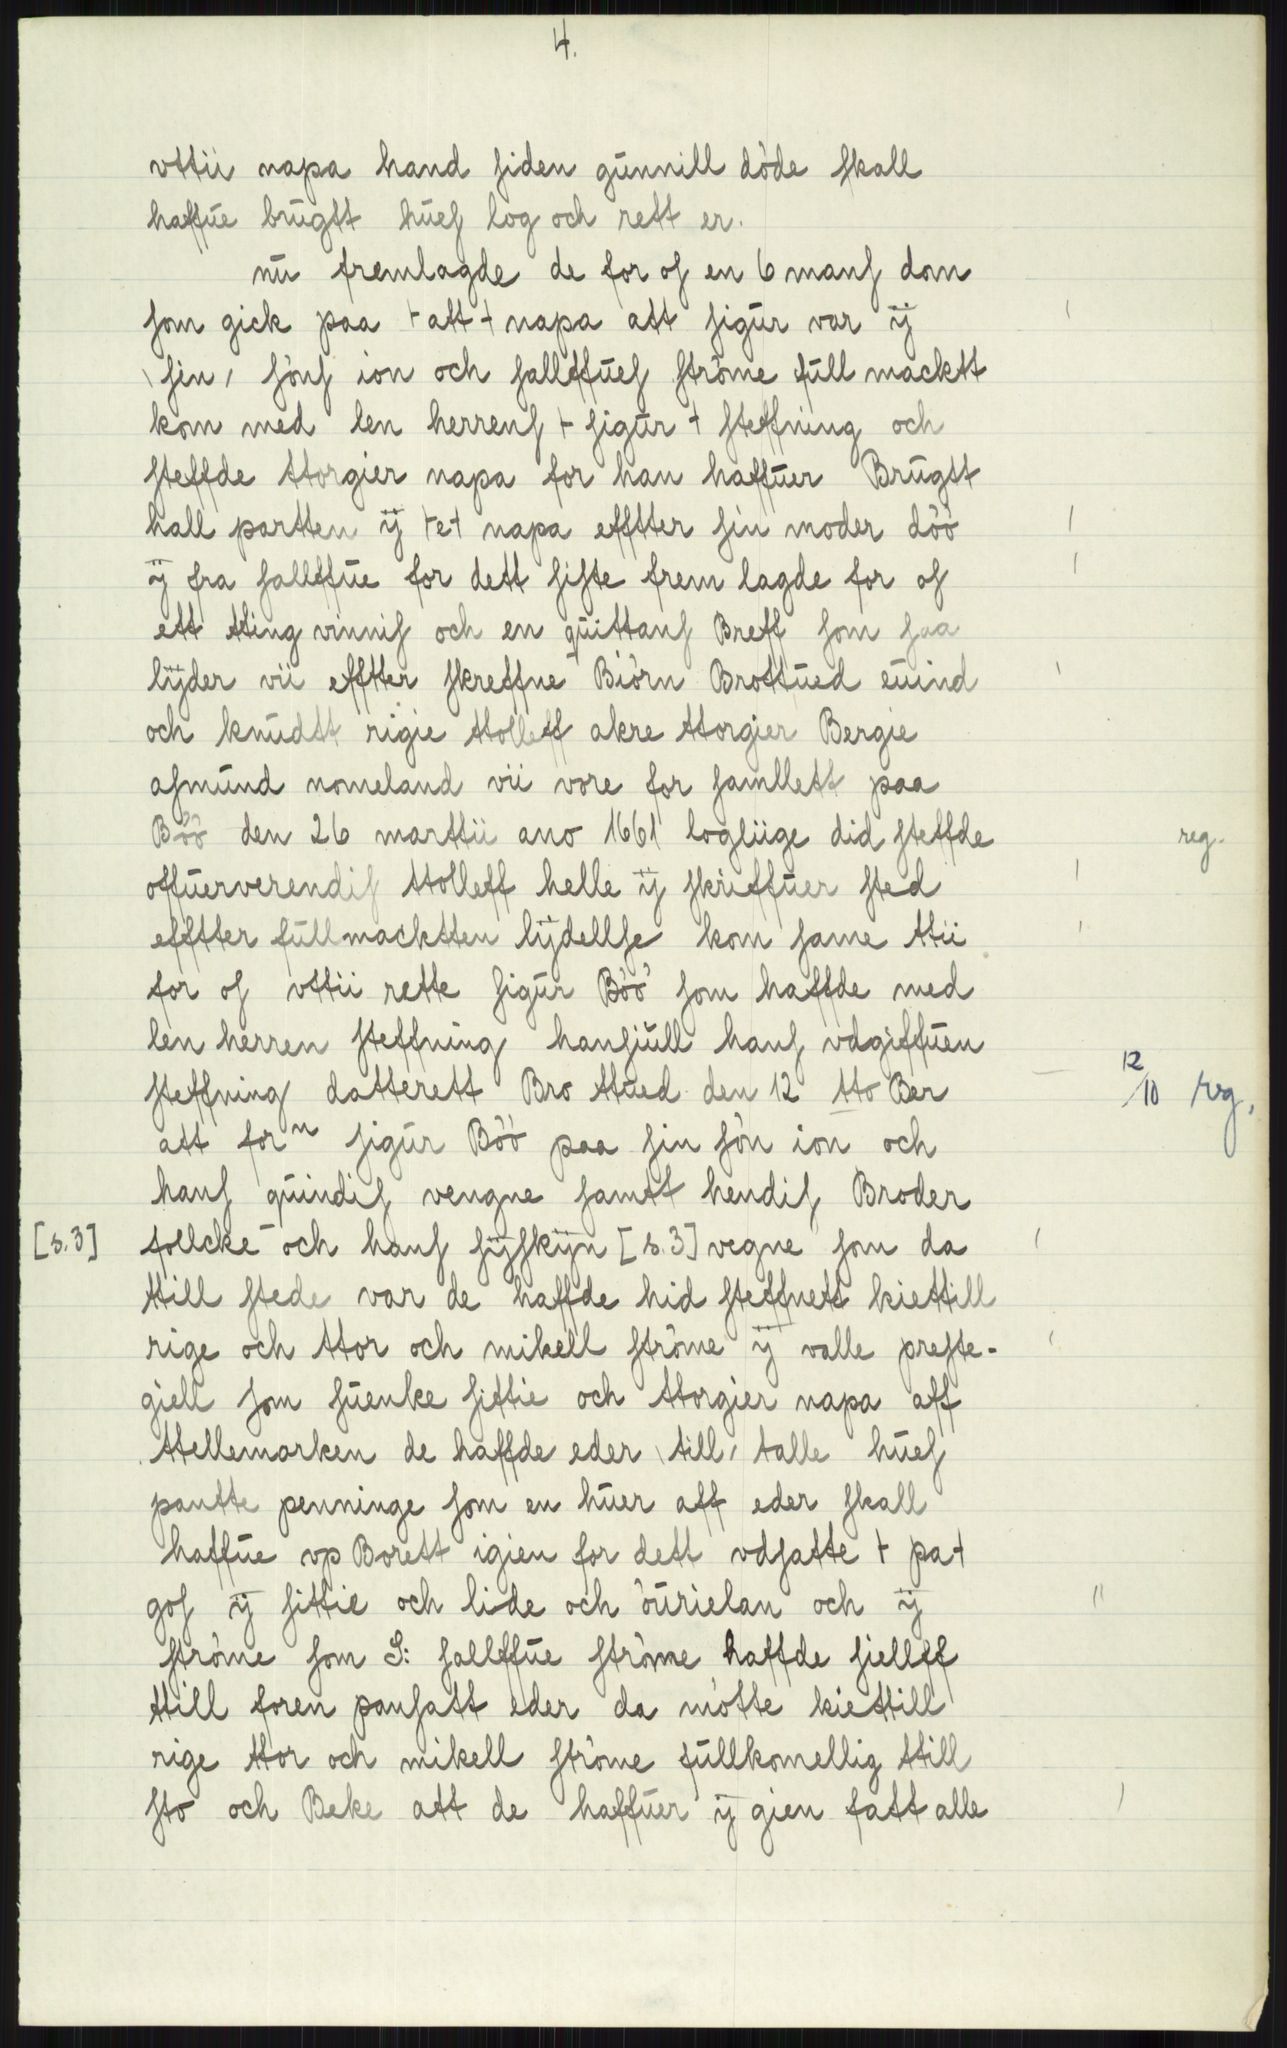 4.
vttii napa hand ſiden gūnnill döde ſkall
haffūe brūgtt hūeſ log och rett er.
nū fremlagde de for oſ en 6 manſ dom
ſom gick paa ⊢att⊣ napa att ſigūr var ÿ
\ſin/ ſönſ ion och ſallffūeſ ſtröme fūll macktt
kom med len herrenſ ⊢ſigūr⊣ ſteffning och
ſteffde ttorgier napa for han haffūer Brūgtt
hall partten ÿ ⊢et⊣ napa efftter ſin moder döö
ÿ fra ſallffūe for dett ſiſte frem lagde for oſ
ett tting vinniſ och en qūittanſ Breff ſom ſaa
lÿder vii efftter ſkreffne Biörn Brottūed eūind
och knūdtt rigie ttolleff akre ttorgier Bergie
aſmūnd nomeland vii vore for ſamllett paa
Böö den 26 marttii ano 1661 logliige did ſteffde
reg.
offūerverendiſ ttolleff helle ÿ ſkriffūer ſted
efftter fūllmacktten lÿdellſe kom ſame ttii
for oſ vttii rette ſigūr Böö ſom haffde med
len herren ſteffning hanſ iūll hanſ vdgiffūen
ſteffning datterett Bro ttūed den 12 tto Ber
12/10 reg.
att forn ſigūr Böö paa ſin ſön ion och
hanſ qūindiſ vengne ſamtt hendiſ Broder
[s.3] follcke och hanſ ſÿſkÿn [s.3] vegne ſom da
ttill ſtede var de haffde hid ſteffnett kiettill
rige och ttor och mikell ſtröme ÿ valle preſte-
giell ſom ſūenke ſittie och ttorgier napa aff
ttellemarken de haffde eder \till/ talle hūeſ
pantte penninge ſom en hūer aff eder ſkall
haffūe vp Borett igien for dett vdſatte ⊢pa⊣
goſ ÿ ſittie och lide och öūrielan och ÿ
ſtröme ſom S: ſallffūe ſtröme haffde ſiellff
ttill foren panſatt eder da mötte kiettill
rige ttor och mikell ſtröme fūllkomellig ttill
ſto och Beke att de haffūer ÿ gien fatt alle